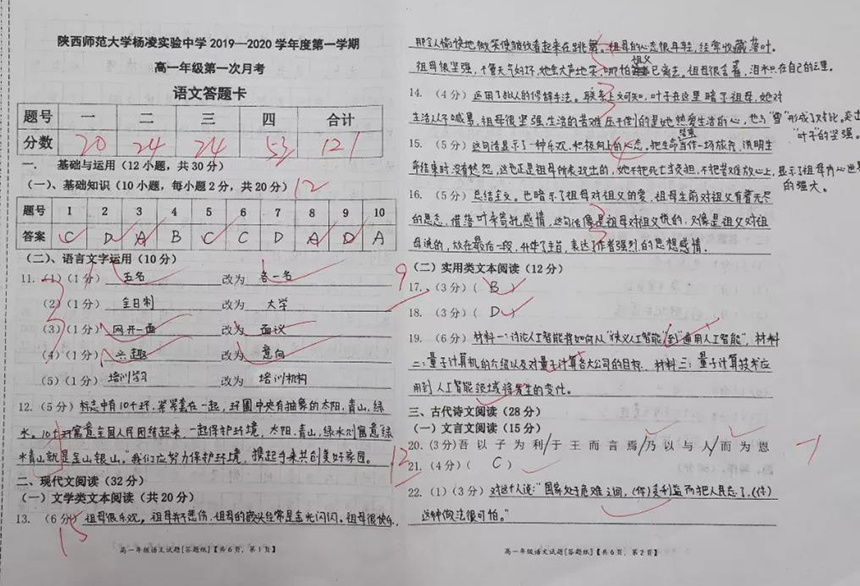 陕西师范大学杨凌实验中学2019—2020学年度第一学期
高一年级第一次月考
语文答题卡
题号 一 二 三 四 合计
分数 20 24 24 53 121
一. 基础与运用(12小题,共30分)
(一)、基础知识(10小题,每小题2分,共20分) 12
题号 1 2 3 4 5 6 7 8 9 10
答案 C D A B C C D A D A
(二)、语言文字运用(10分)
11.(1)(1分) 五名 改为 各一名 9
(2)(1分) 全日制 改为 大学
(3)(1分) 网开一面 改为 面议
(4)(1分) 兴趣 改为 意向
(5)(1分) 培训学习 改为 培训机构
12.(5分) 标志中有10个环,紧紧套在一起,环圈中央有抽象的太阳,青山,绿
水。10个环寓意全国人民团结起来,一起保护环境,太阳,青山,绿水则寓意绿
水青山就是金山银山。"我们应努力保护环境,携起手来共创美好家园。
二、现代文阅读(32分) 12
(一)文学类文本阅读(共20分)
13.(6分) 祖母很乐观,祖母并不悲伤,祖母的
15
高一年级语文试题[答题纸]【共6页,第1页】
祖母的心态很年轻,经常收藏落叶。
祖母很坚强,
14.(4分) 运用了拟人的修辞手法。联系上文可知,叶子在这里暗了祖母,她对
祖母很坚强,生活的苦难压不倒的是她热爱生活的心,
"叶子"的坚强。
15.(5分) 这句话显示了一种乐观,积极向上的心态,把生命当作一场旅行,说明生
祖母内心世界
的强大。
16.(5分) 总结全文。也暗示了祖母对祖父的爱,祖母生前对祖父有着无尽
的思念,借落叶来寄托感情,这句话像是祖母对祖父说的,又像是祖父对祖
母说的,放在最后一段,升华了主旨,表达了作者强烈的思想感情。
(二)实用类文本阅读(12分)
17.(3分)( B )
18.(3分)( D )
19.(6分) 材料一:讨论人工智能将如何从"狭义人工智能"到"通用人工智能",材料
二:量子计算机的介绍以及对量子计算各大公司的目标. 材料三:量子计算技术应
用到人工智能领域将发生的变化。
三、古代诗文阅读(28分)
(一)文言文阅读(15分)
20.(3分)吾以子为利/于王而言焉/乃以与人/而为恩
21.(4分)( C )
22.(1)(3分) 对这个人说:"国家处于危难之间,(你)贪利益而把人民忘了,(你)
这种做法很可怕。"
高一年级语文试题[答题纸]【共6页,第2页】